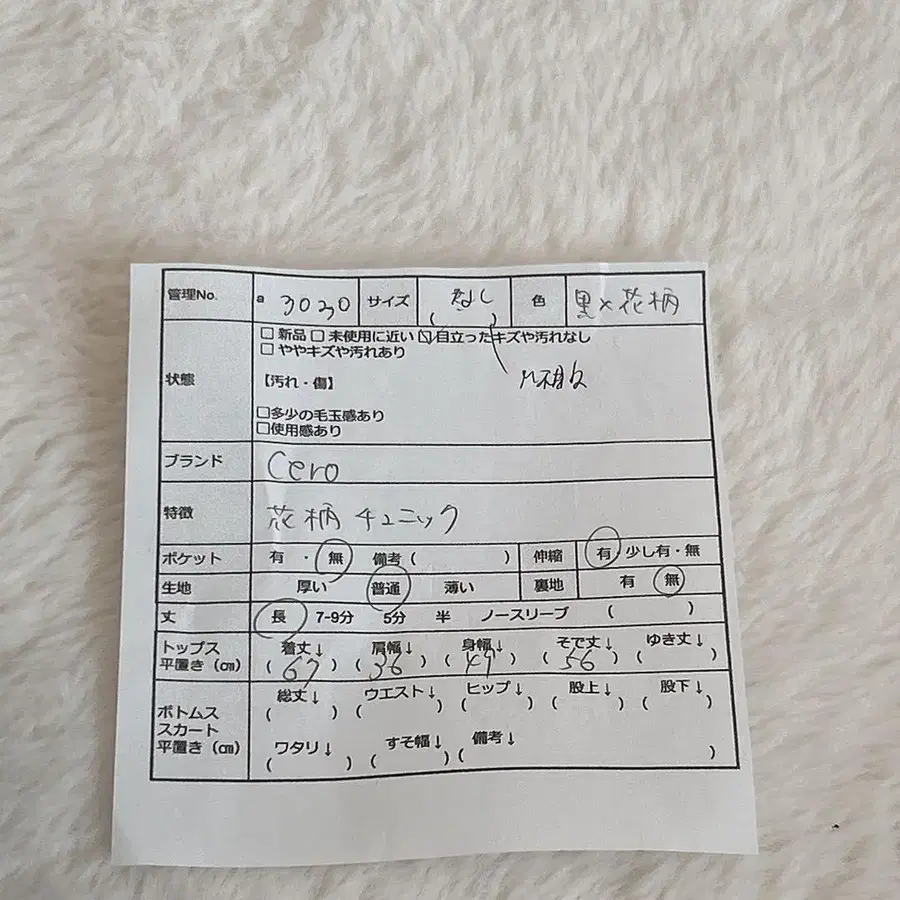 管理No. a 3030 サイズ なし ( ) 色 黒×花柄
状態 □ 新品 □ 未使用に近い ☑ 目立ったキズや汚れなし
□ ややキズや汚れあり
M相当
【汚れ・傷】
□多少の毛玉感あり
□使用感あり
ブランド Cero
特徴 花柄 チュニック
ポケット 有 ・ 無 備考 ( ) 伸縮 有・少し有・無
生地 厚い 普通 薄い 裏地 有 無
丈 長 7-9分 5分 半 ノースリーブ ( )
トップス 着丈↓ 肩幅↓ 身幅↓ そで丈↓ ゆき丈↓
平置き (㎝) (67) (36) (49) (56) ( )
ボトムス 総丈↓ ウエスト↓ ヒップ↓ 股上↓ 股下↓
スカート ( ) ( ) ( ) ( ) ( )
平置き (㎝) ワタリ↓ すそ幅↓ 備考↓
( ) ( ) ( )